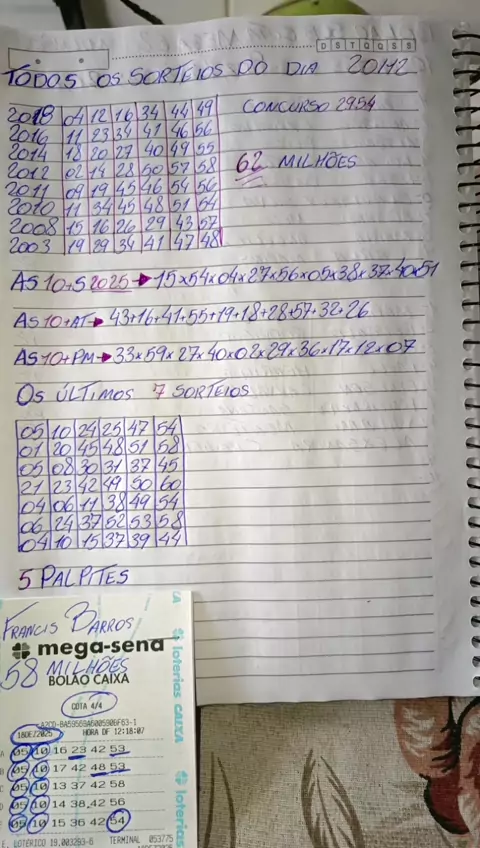 D S T Q Q S S
TODOS OS SORTEIOS DO DIA 20/12
2018 04 12 16 34 44 49 CONCURSO 2954
2016 11 23 34 41 46 56
2014 18 20 27 40 49 55
2012 02 14 28 50 57 58 62 MILHÕES
2011 09 19 45 46 54 56
2010 11 34 45 48 51 54
2008 15 16 26 29 43 57
2003 19 29 34 41 47 48
AS 10+S 2025 → 15x54x04x27x56x05x38x37x40x51
AS 10+AT → 43+16+41+55+19+18+28+57+32+26
AS 10+PM → 33x59x27x40x02x29x36x17x12x07
OS ÚLTIMOS 7 SORTEIOS
05 10 24 25 47 54
01 20 45 48 51 58
05 08 30 31 37 45
21 23 42 49 50 60
04 06 11 38 49 54
06 24 37 52 53 58
04 10 15 37 39 44
5 PALPITES
FRANCIS BARROS
mega-sena
58 MILHÕES
BOLÃO CAIXA
COTA 4/4
18DEZ2025 HORA DF 12:18:07
A 05 10 16 23 42 53
B 05 10 17 42 48 53
C 05 10 13 37 42 58
D 05 10 14 38 42 56
05 10 15 36 42 54
TERMINAL 053775
loterias CAIXA
loterias